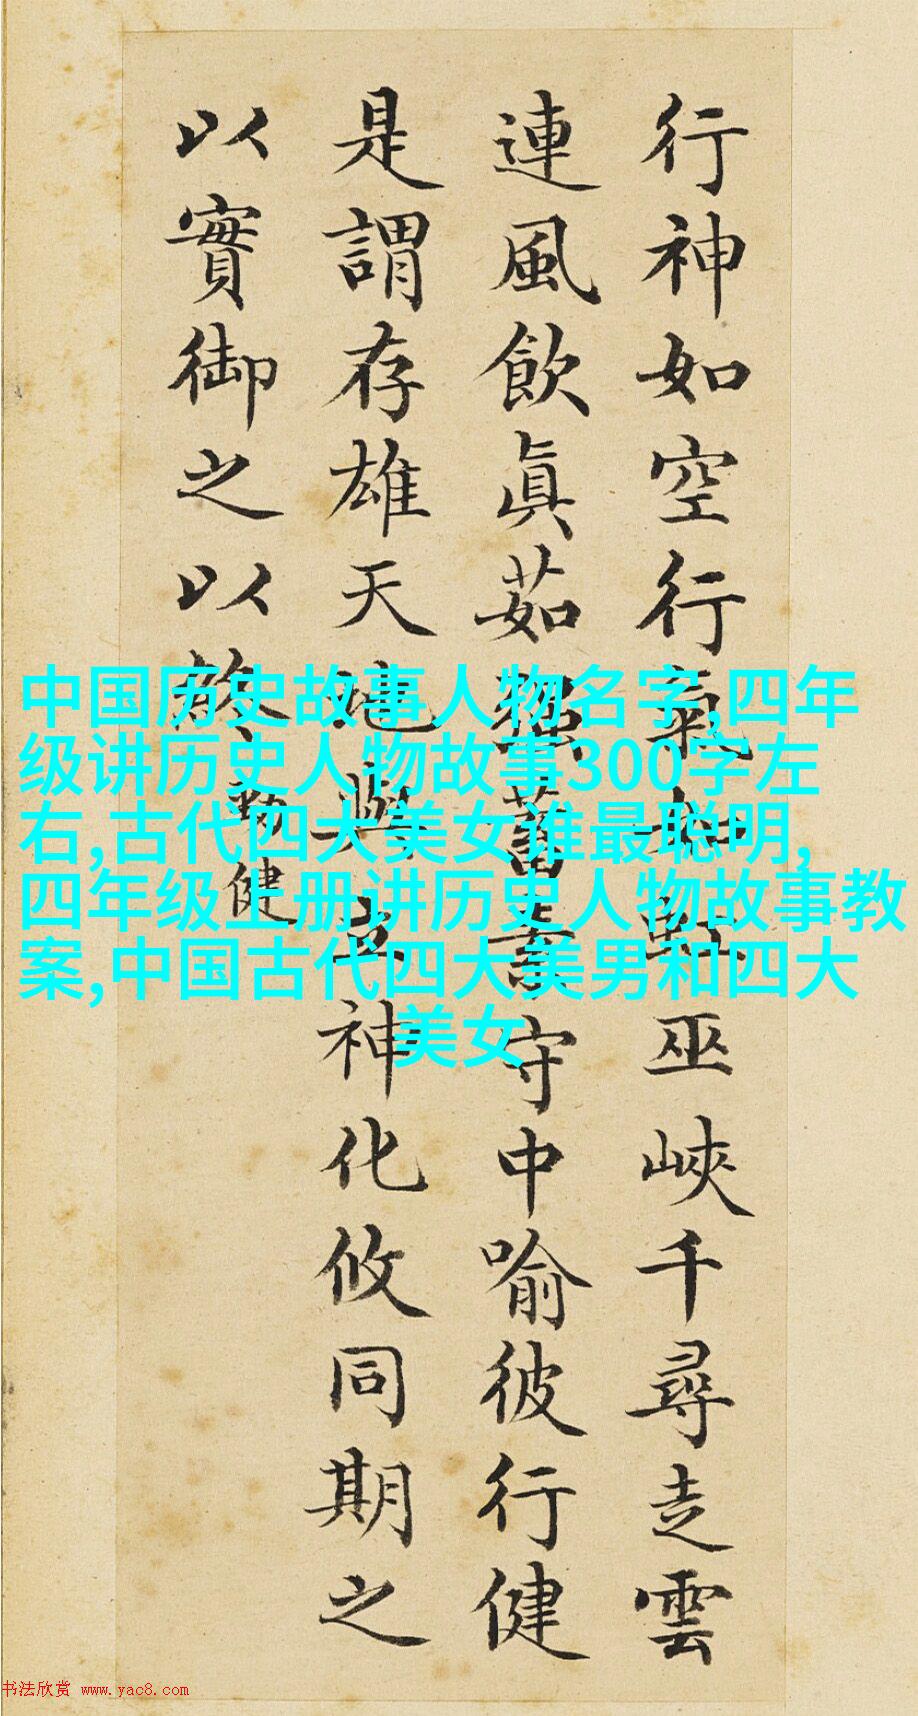 行神如空行氣如虹巫峽千尋走雲
連風飲眞茹強蓄素守中喻彼行健
是謂存雄天地與立神化攸同期之
以實御之以終
勁健
中国历史故事人物名字,四年
级讲历史人物故事300字左
右,古代四大美女谁最聪明,
四年级上册讲历史人物故事教
案,中国古代四大美男和四大
美女
书法欣赏 www.yac8.com